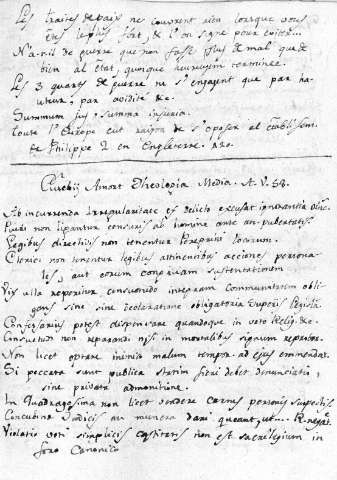 Les traités de paix ne couvrent rien lorsque vous
etes le plus fort, & l'on signe pour eviter...
N'a-t-il de guerre qui non fasse plus de mal que de
bien al état, quoique heureusem terminée.
Les 3 quarts de guerre ne s'engagent que par ha-
uteur, par avidité &c.
Summum jus, summa injuria.
Toute l'Europe eut raison de s'oposer al etablissem.
de Philippe 2 en Engleterre.
Eusebij Amort Theologia Media. A. V. 58.
Ab incurrenda Irregularitate ex delicto excusat ignorantia
Pueri non ligantur censuris ab homine ante an. pubertatis
Legibus directivis non tenentur Peregrini locorum.
Clerici non tenentur legibus attinentibus acciones persona-
les, aut eorum congruam sustentationem
Vix ulla reperitur consuetudo integram Communitatem obli-
gans sine sine declaratione obligatoria
Confessarius potest dispensare quandoque in voto Relig. &c.
Consuetudo non reparandi nisi in mortalibus signum reprobae.
Non licet optare inimico malum tempor. ad ejus emmendat.
Si peccata sunt publica statim fieri debet denunciatio,
sine privata admonitione.
In Quadragesima non licet vendere carnes personis suspectis
Concubina Judicis an munera dari queant, R. negat.
Violatio voti simplicis castitatis non est sacrilegium in
foro Canonico